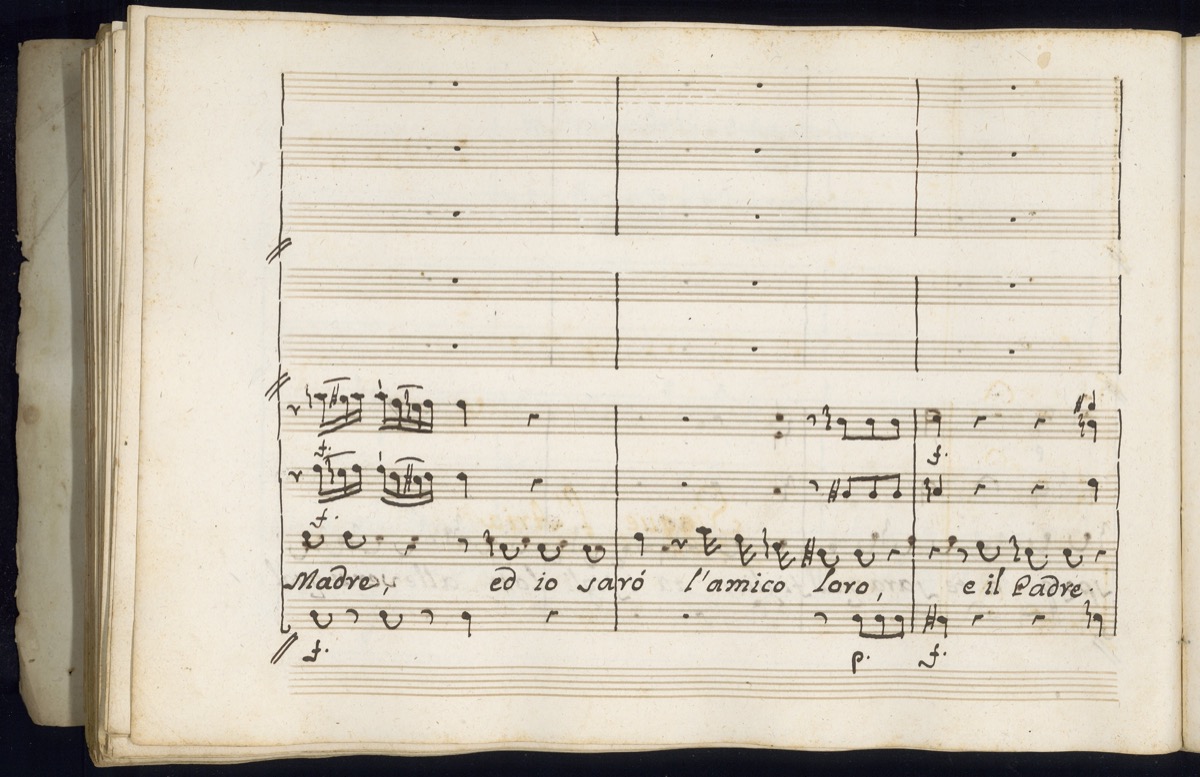 f.
f.
f.
Madre, ed io saró l'amico loro, e il Padre.
f. p. f.